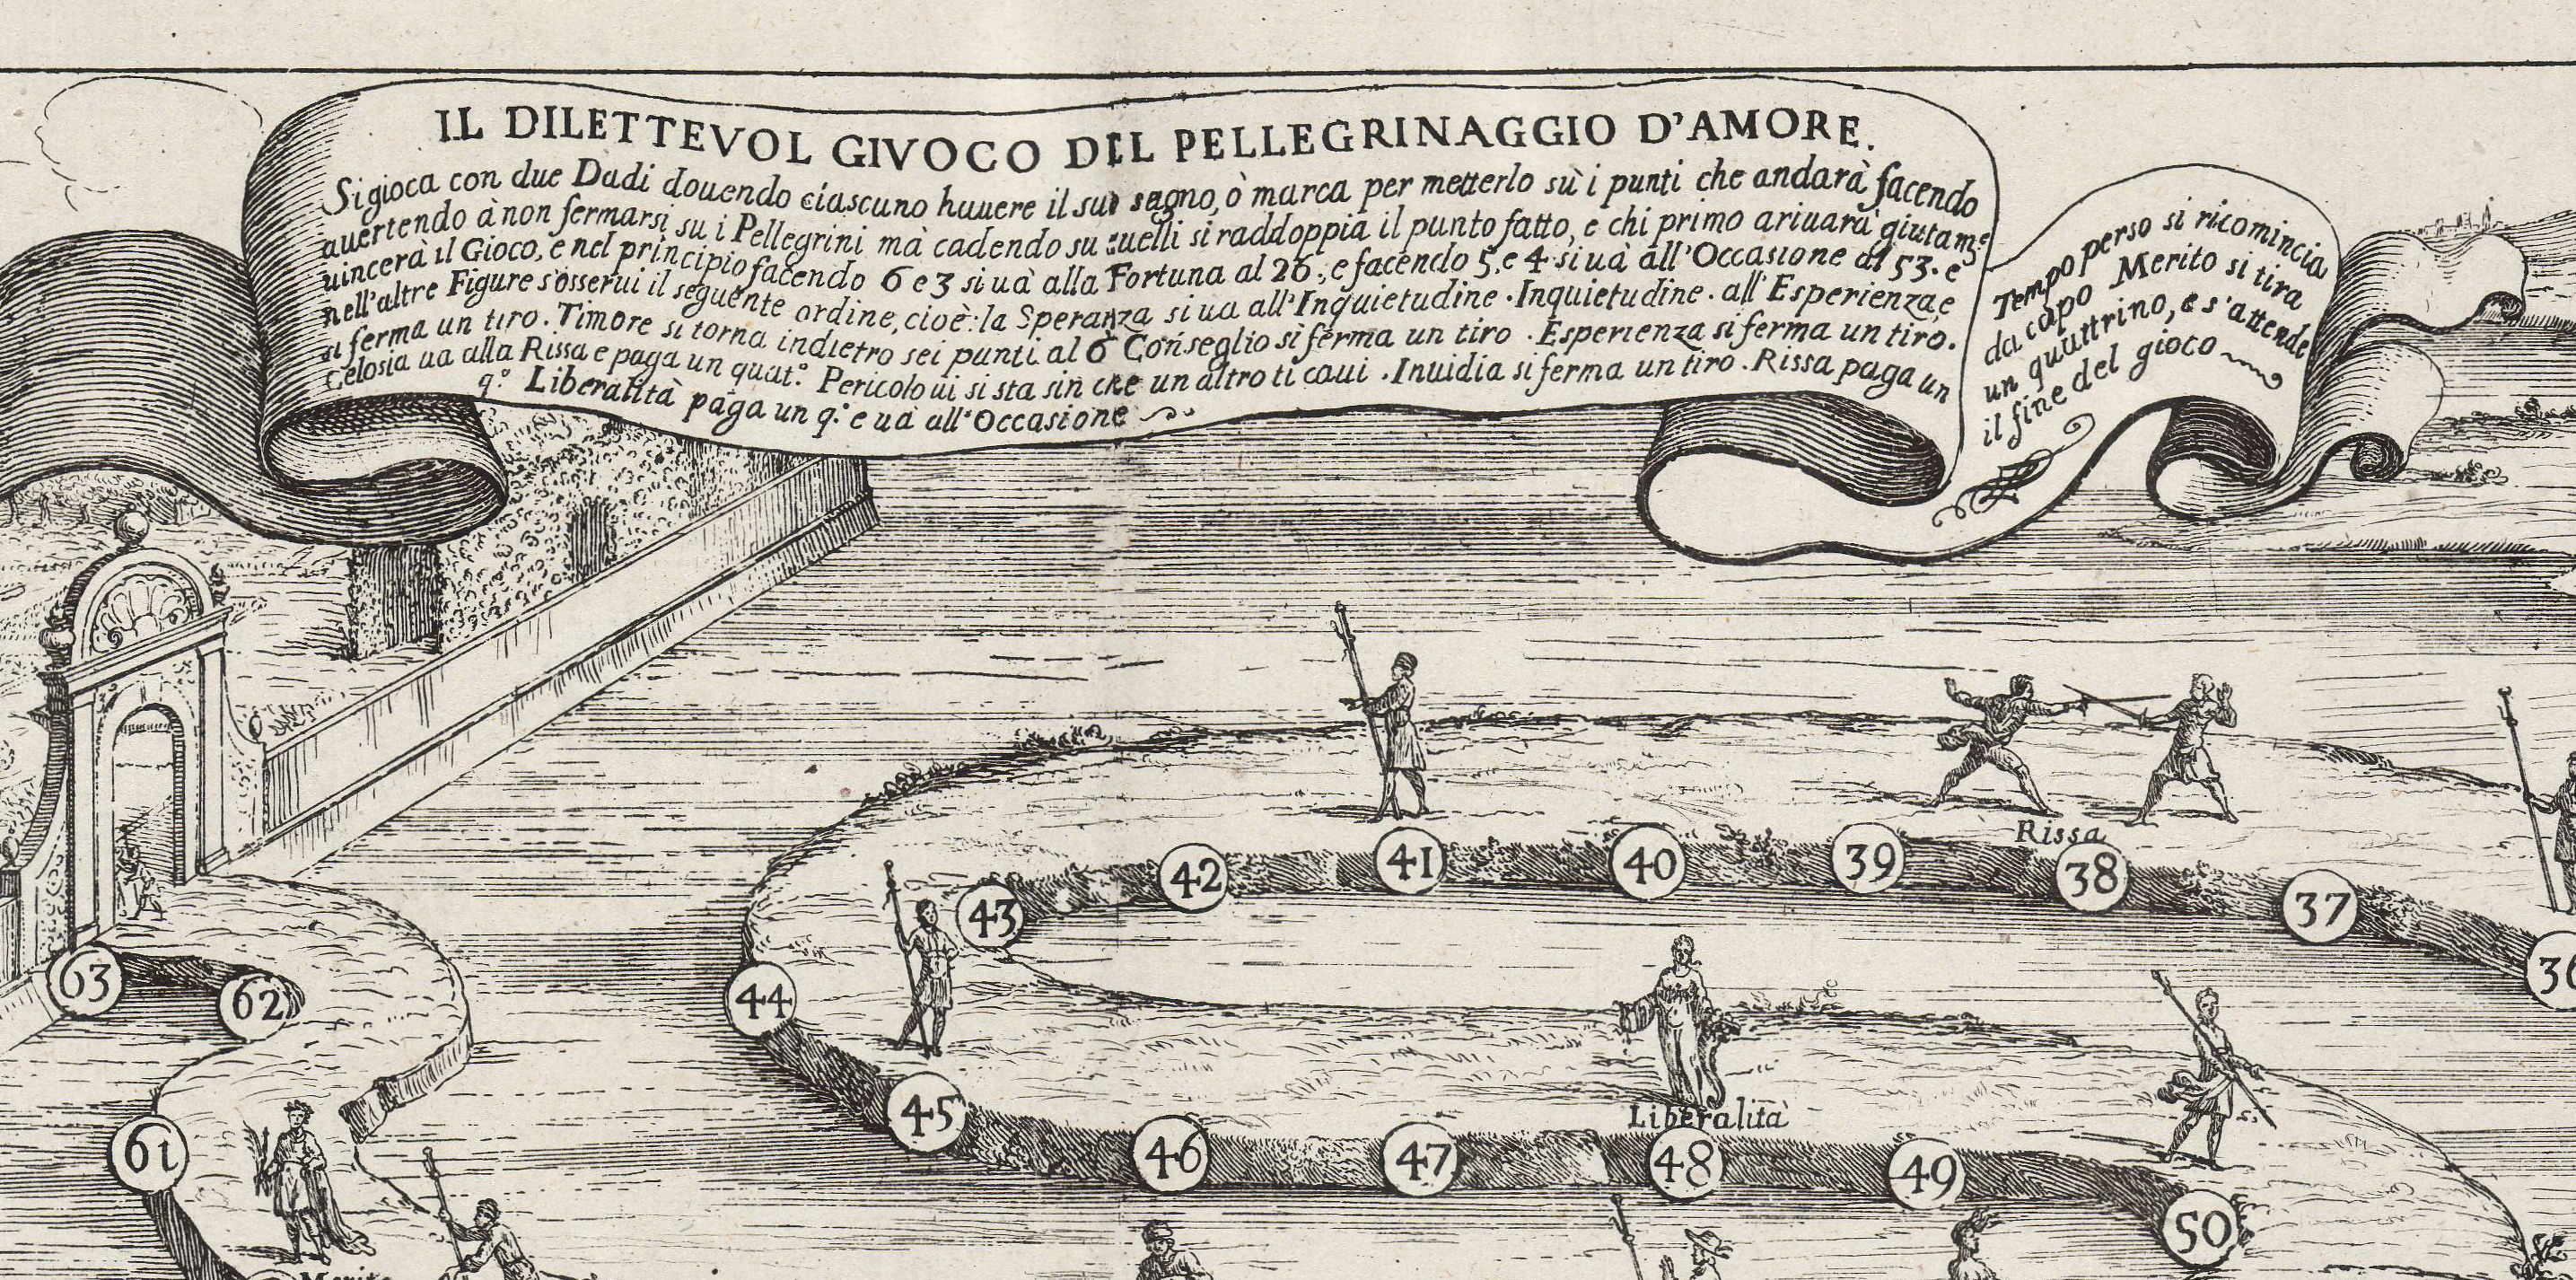 IL DILETTEVOL GIVOCO DEL PELLEGRINAGGIO D'AMORE.
Si gioca con due Dadi douendo ciascuno hauere il suo segno, ò marca per metterlo sù i punti che andarà facendo
auertendo à non fermarsi su i Pellegrini mà cadendo su quelli si raddoppia il punto fatto, e chi primo ariuarà giustam.e
uincerà il Gioco, e nel principio facendo 6 e 3 si uà alla Fortuna al 26., e facendo 5. e 4 si uà all'Occasione al 53. e
nell'altre Figure s'osserui il seguente ordine, cioè: la Speranza si ua all'Inquietudine. Inquietudine. all'Esperienza, e
si ferma un tiro. Timore si torna indietro sei punti al 6 Conseglio si ferma un tiro. Esperienza si ferma un tiro.
Gelosia ua alla Rissa e paga un quat.º Pericolo ui si sta sin che un altro ti caui. Inuidia si ferma un tiro. Rissa paga un
q.º Liberalità paga un q.º e uà all'Occasione
Tempo perso si ricomincia
da capo Merito si tira
un quattrino, e s'attende
il fine del gioco
Rissa
42
41
40
39
38
37
36
43
63
62
44
Liberalità
45
46
47
48
49
50
61
Merito